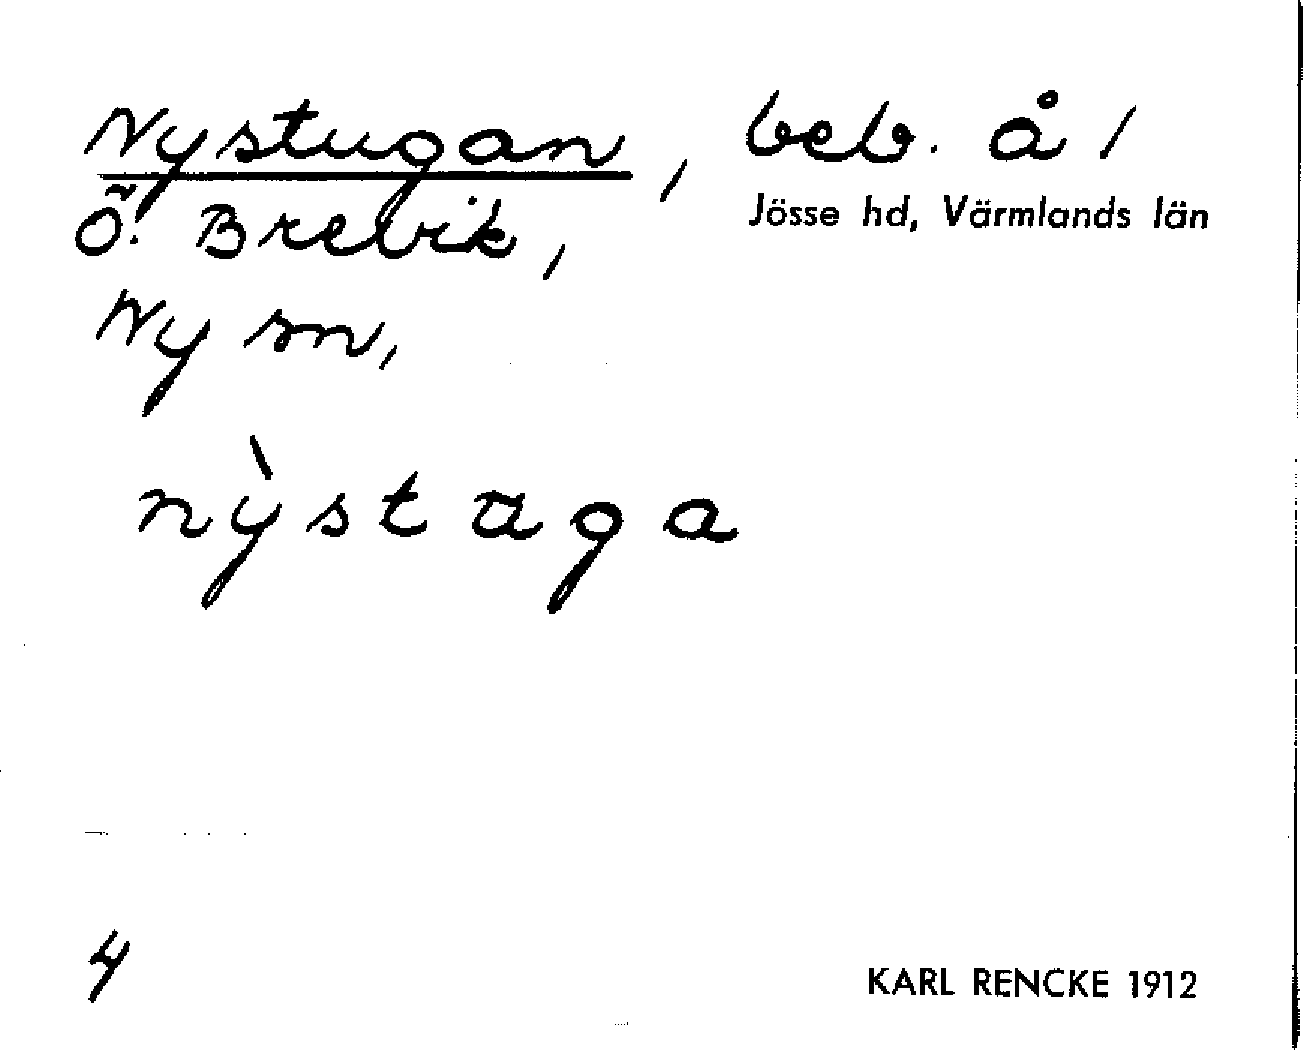 Nystugan, beb. å 1
Jösse hd, Värmlands län
Ö. Brevik,
Ny sn,
nỳstaga
4
KARL RENCKE 1912